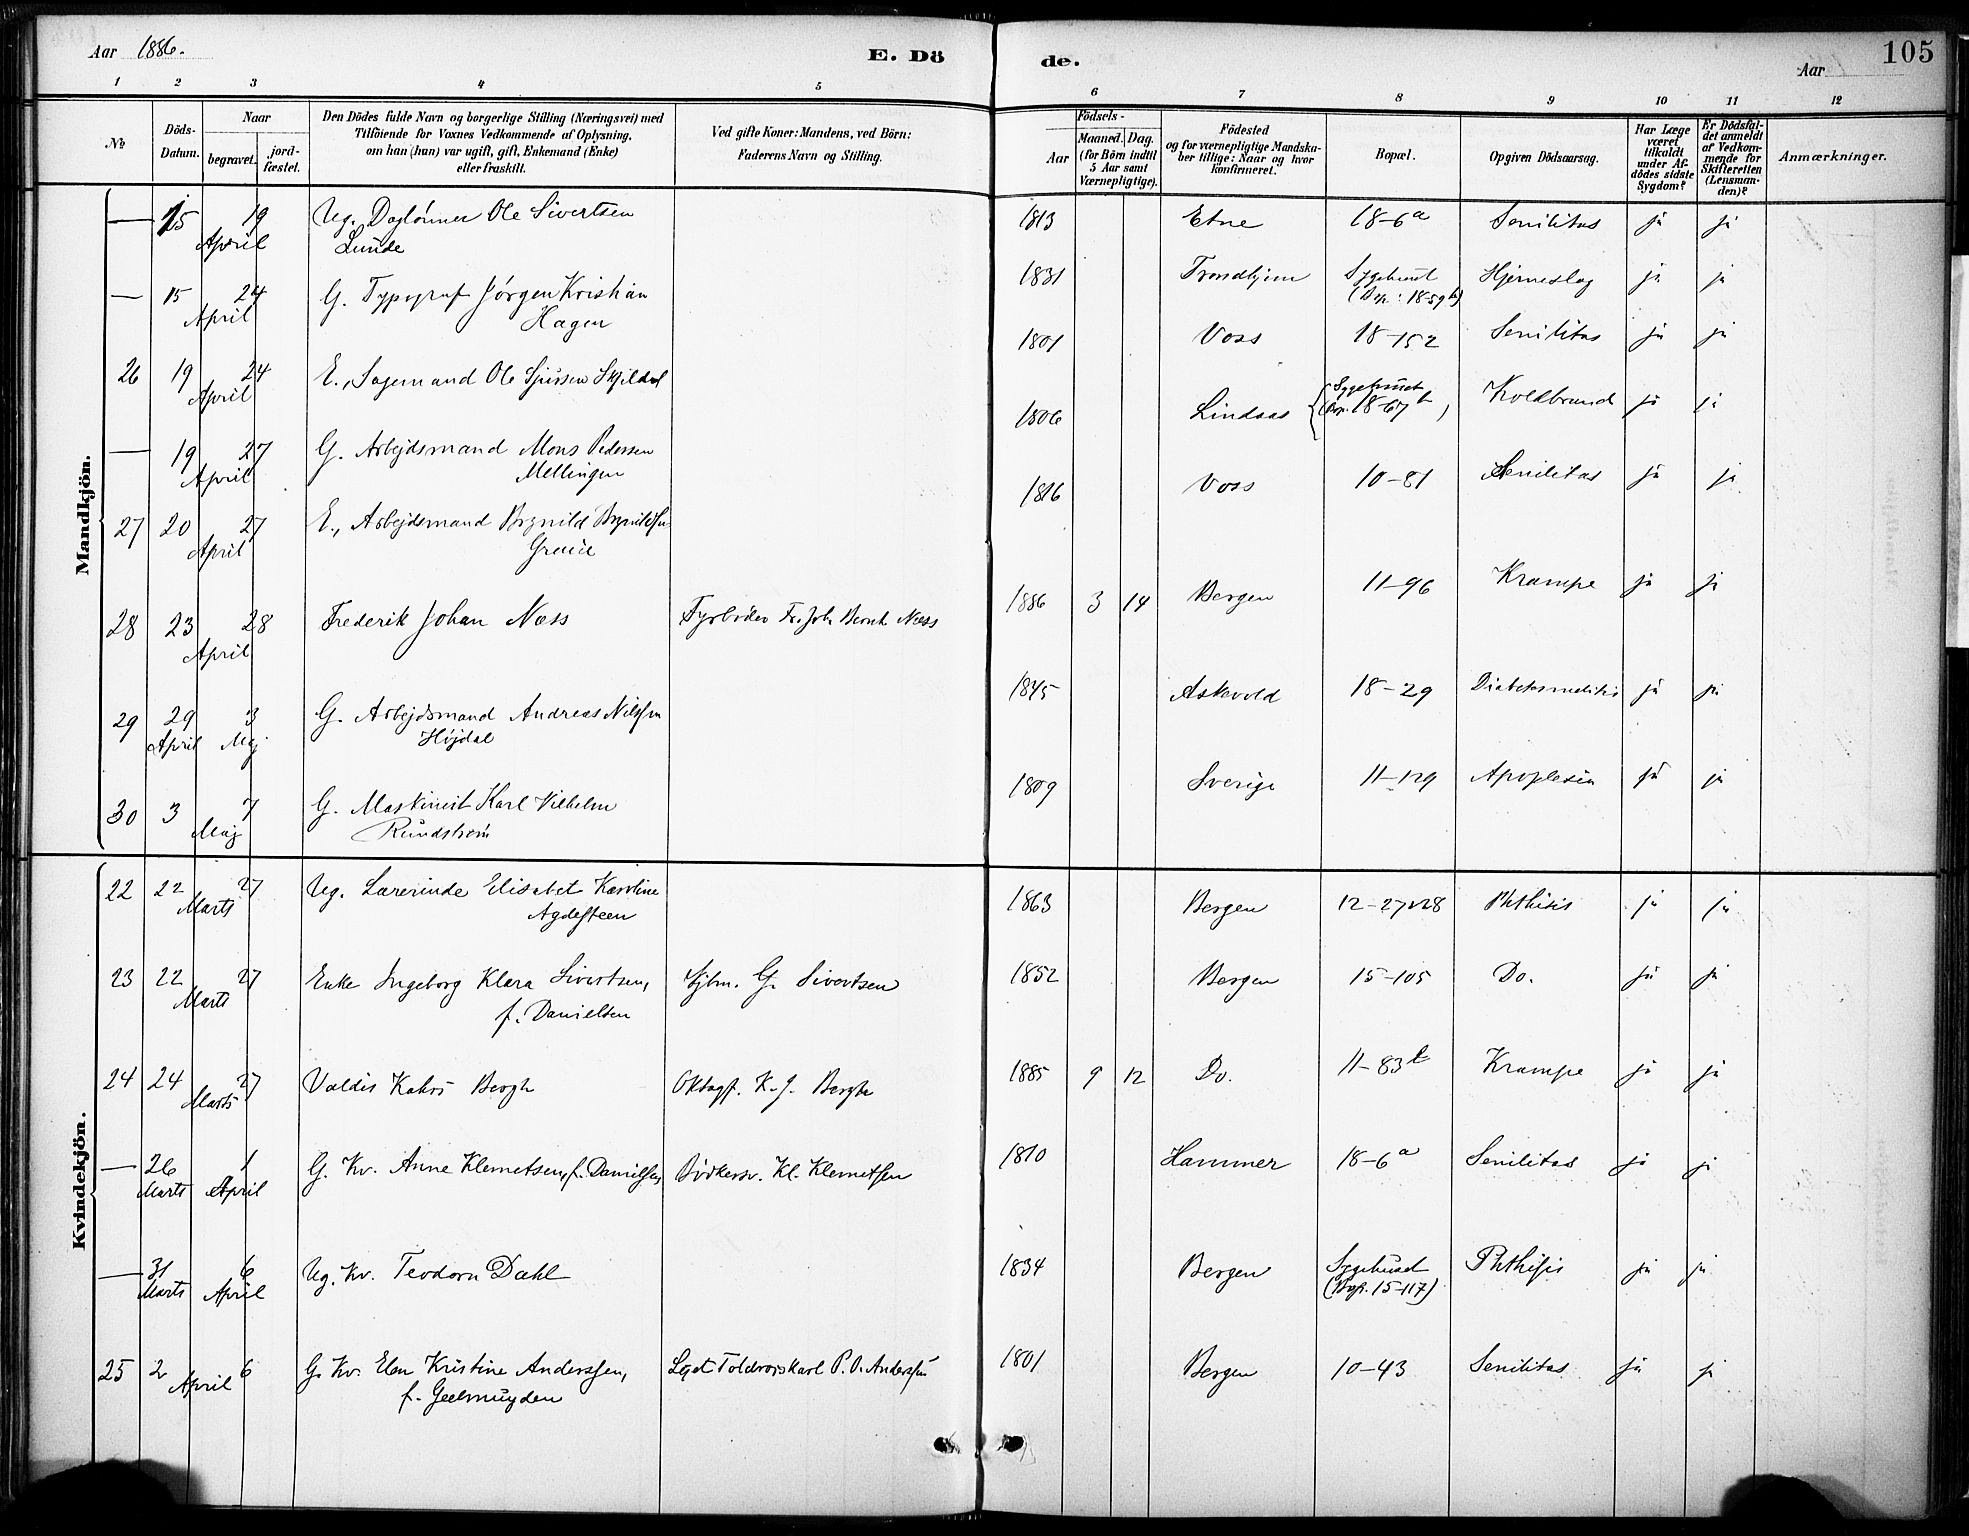 Aar 1886. E. Dö de. Aar 105
1 2 3 4 5 6 7 8 9 10 11 12
№
Döds-Datum.
Naar
begravet.
jord-fæstet.
Den Dödes fulde Navn og borgerlige Stilling (Næringsvei) med
Tilföiende for Voxnes Vedkommende af Oplysning,
om han (hun) var ugift, gift, Enkemand (Enke)
eller fraskilt.
Ved gifte Koner: Mandens, ved Börn:
Faderens Navn og Stilling.
Födsels-
Aar
Maaned. Dag.
(for Börn indtil
5 Aar samt
Værnepligtige).
Födested
og for værnepligtige Mandska-
ber tillige: Naar og hvor
konfirmeret.
Bopæl.
Opgiven Dödsaarsag.
Har Læge
været
tilkaldt
under Af-
dödes sidste
Sygdom?
Er Dödsfal-
det anmeldt
af Vedkom-
mende for
Skifteretten
(Lensman-
den)?
Anmærkninger.
Mandkjön.
— 15 19 Ug. Daglönner Ole Sivertsen 1813 Etne 18-6a Senilitas ja ja
April Lunde
— 15 24 G. Typograf Jørgen Kristian 1831 Trondhjem Sygehuset Hjerneslag ja ja
April Hagen (Bop: 18-59b)
26 19 24 E., Sagemand Ole Sjursen Skjildal 1801 Voss 18-152 Senilitas ja ja
April
— 19 27 G. Arbejdsmand Mons Pedersen 1806 Lindaas Sygehuset (Bop. 18-67b) Koldbrand ja ja
April Mellingen
27 20 27 E., Arbejdsmand Brynild Brynildsen 1816 Voss 10-81 Senilitas ja ja
April Graue
28 23 28 Frederik Johan Næss Fyrbøder Fr. Joh. Bernh. Næss 1886 3 14 Bergen 11-96 Krampe ja ja
April
29 29 3 G. Arbejdsmand Andreas Nilssen 1845 Askvold 18-29 Diabetes mellitis ja ja
April Maj Højdal
30 3 7 G. Maskinist Karl Vilhelm 1809 Sverige 11-129 Apoplexia ja ja
Maj Rundstrøm
Kvindekjön.
22 22 27 Ug. Lærerinde Elisabet Karoline 1863 Bergen 12-27&28 Phthisis ja ja
Marts Agdesteen
23 22 27 Enke Ingeborg Klara Sivertsen, Sjbm. G. Sivertsen 1852 Bergen 15-105 Do. ja ja
Marts f. Danielsen
24 24 27 Valdis Kahrs Bergh K. J. Bergh 1885 9 12 Do. 11-83b Krampe ja ja
Marts
— 26 1 G. Kv. Anne Klemetsen, f. Danielsen, Bødkersv. Kl. Klemetsen 1810 Hammer 18-6a Senilitas ja ja
Marts April
— 31 6 Ug. Kv. Teodora Dahl 1834 Bergen Sygehuset Phthisis ja ja
Marts April (Bop. 15-117)
25 2 6 G. Kv. Elen Kristine Anderssen, P. O. Anderssen 1801 Bergen 10-43 Senilitas ja ja
April f. Geelmuyden